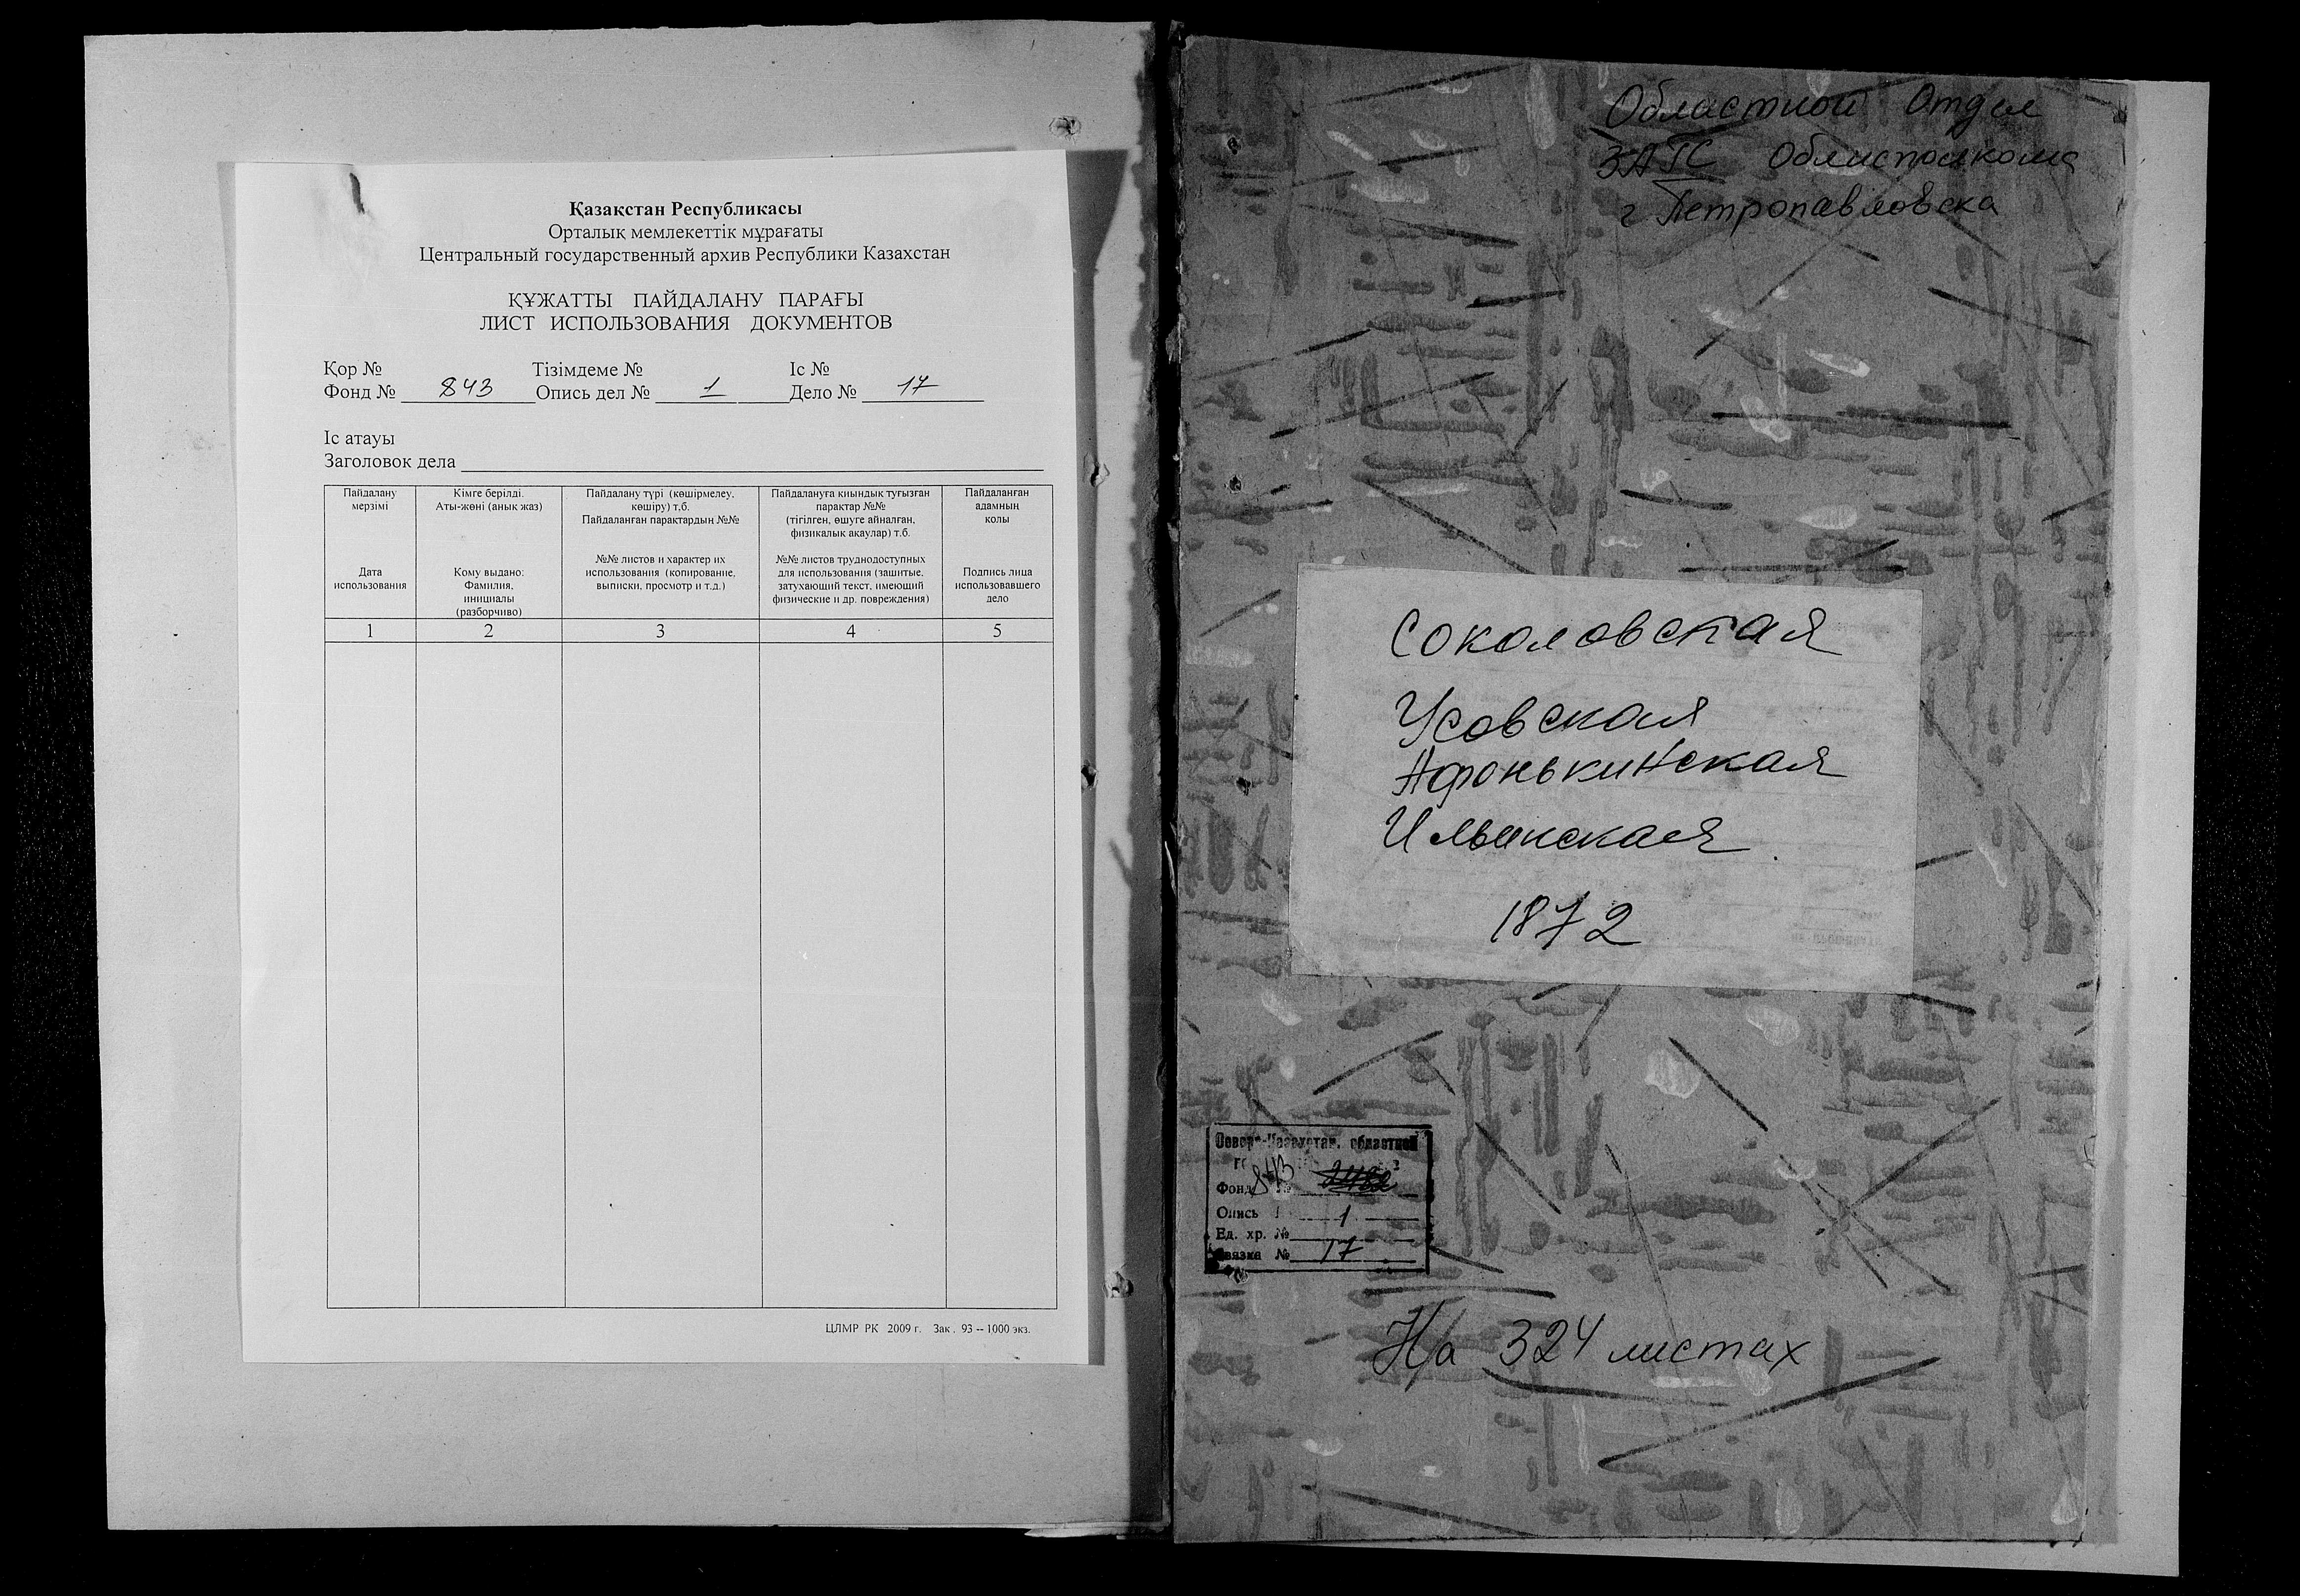 Қазақстан Республикасы
Орталық мемлекеттік мұрағаты
Центральный государственный архив Республики Казахстан
ҚҰЖАТТЫ ПАЙДАЛАНУ ПАРАҒЫ
ЛИСТ ИСПОЛЬЗОВАНИЯ ДОКУМЕНТОВ
Қор № Тізімдеме № Іс №
Фонд № 843 Опись дел № 1 Дело № 17
Іс атауы
Заголовок дела
Пайдалану
мерзімі
Дата
использования
Кімге берілді.
Аты-жөні (анық жаз)
Кому выдано:
Фамилия,
инициалы
(разборчиво)
Пайдалану түрі (көшірмелеу,
көшіру) т,б.
Пайдаланған парақтардың №№
№№ листов и характер их
использования (копирование,
выписки, просмотр и т.д.)
Пайдалануға қиындық туғызған
парақтар №№
(тігілген, өшуге айналған,
физикалық ақаулар) т.б.
№№ листов труднодоступных
для использования (зашитые,
затухающий текст, имеющий
физические и др. повреждения)
Пайдаланған
адамның
қолы
Подпись лица
использовавшего
дело
1 2 3 4 5
ЦЛМР РК 2009 г. Зак. 93 -- 1000 экз.
Областной Отдел
ЗАГС Облисполкома
г Петропавловска
Соколовская
Усовская
Афонькинская
Ильинская
1872
Северо-Казахстан. областной
Фонд 843
Опись 1
Ед. хр. №
Связка № 17
На 324 листах